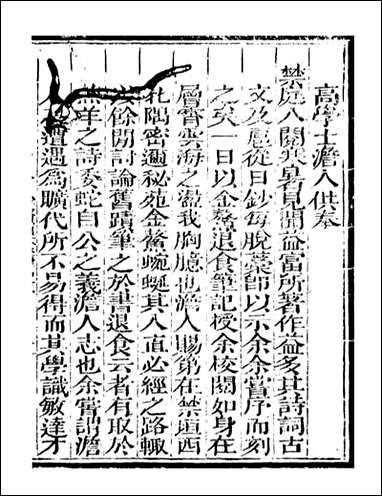 高學士澹人供奉
禁庭八閱寒暑見聞益富所著作益多其詩詞古
文及扈從日鈔每脫藁即以示余余嘗序而刻
之矣一日以金鰲退食筆記授余校閱如身在
層霄雲海之盪我胸臆也澹人賜第在禁垣西
北隅密邇秘苑金鰲蜿蜒其入直必經之路輙
以餘閒討論舊蹟筆之於書退食云者有取於
羔羊之詩委蛇自公之義澹人志也余嘗謂澹
人遭遇為曠代所不易得而其學識敏達才